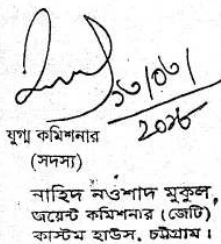 ১৩/০৩/
2016
যুগ্ম কমিশনার
(সদস্য)
নাহিদ নওশাদ মুকুল,
জয়েন্ট কমিশনার (জেটি)
কাস্টম হাউস, চট্টগ্রাম।